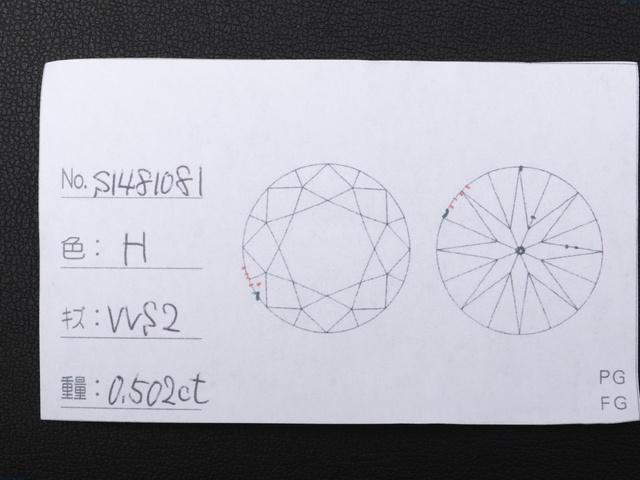 No. S1481081
色： H
キズ： VVS2
重量： 0.502ct
PG
FG